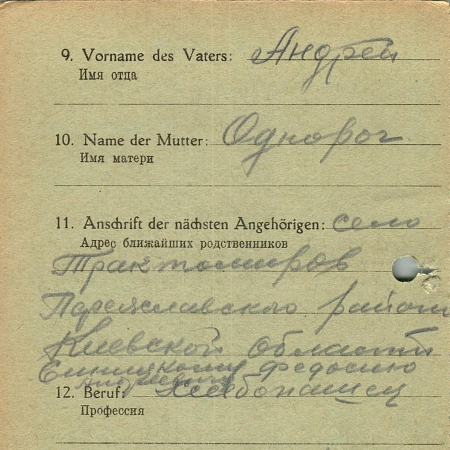 9. Vorname des Vaters: Андрей
Имя отца
10. Name der Mutter: Однорог
Имя матери
11. Anschrift der nächsten Angehörigen: село
Адрес ближайших родственников
Трактомиров
Переяславского район
Киевской области
Феодосию
Андреевичу
12. Beruf: Хлебопашец
Профессия